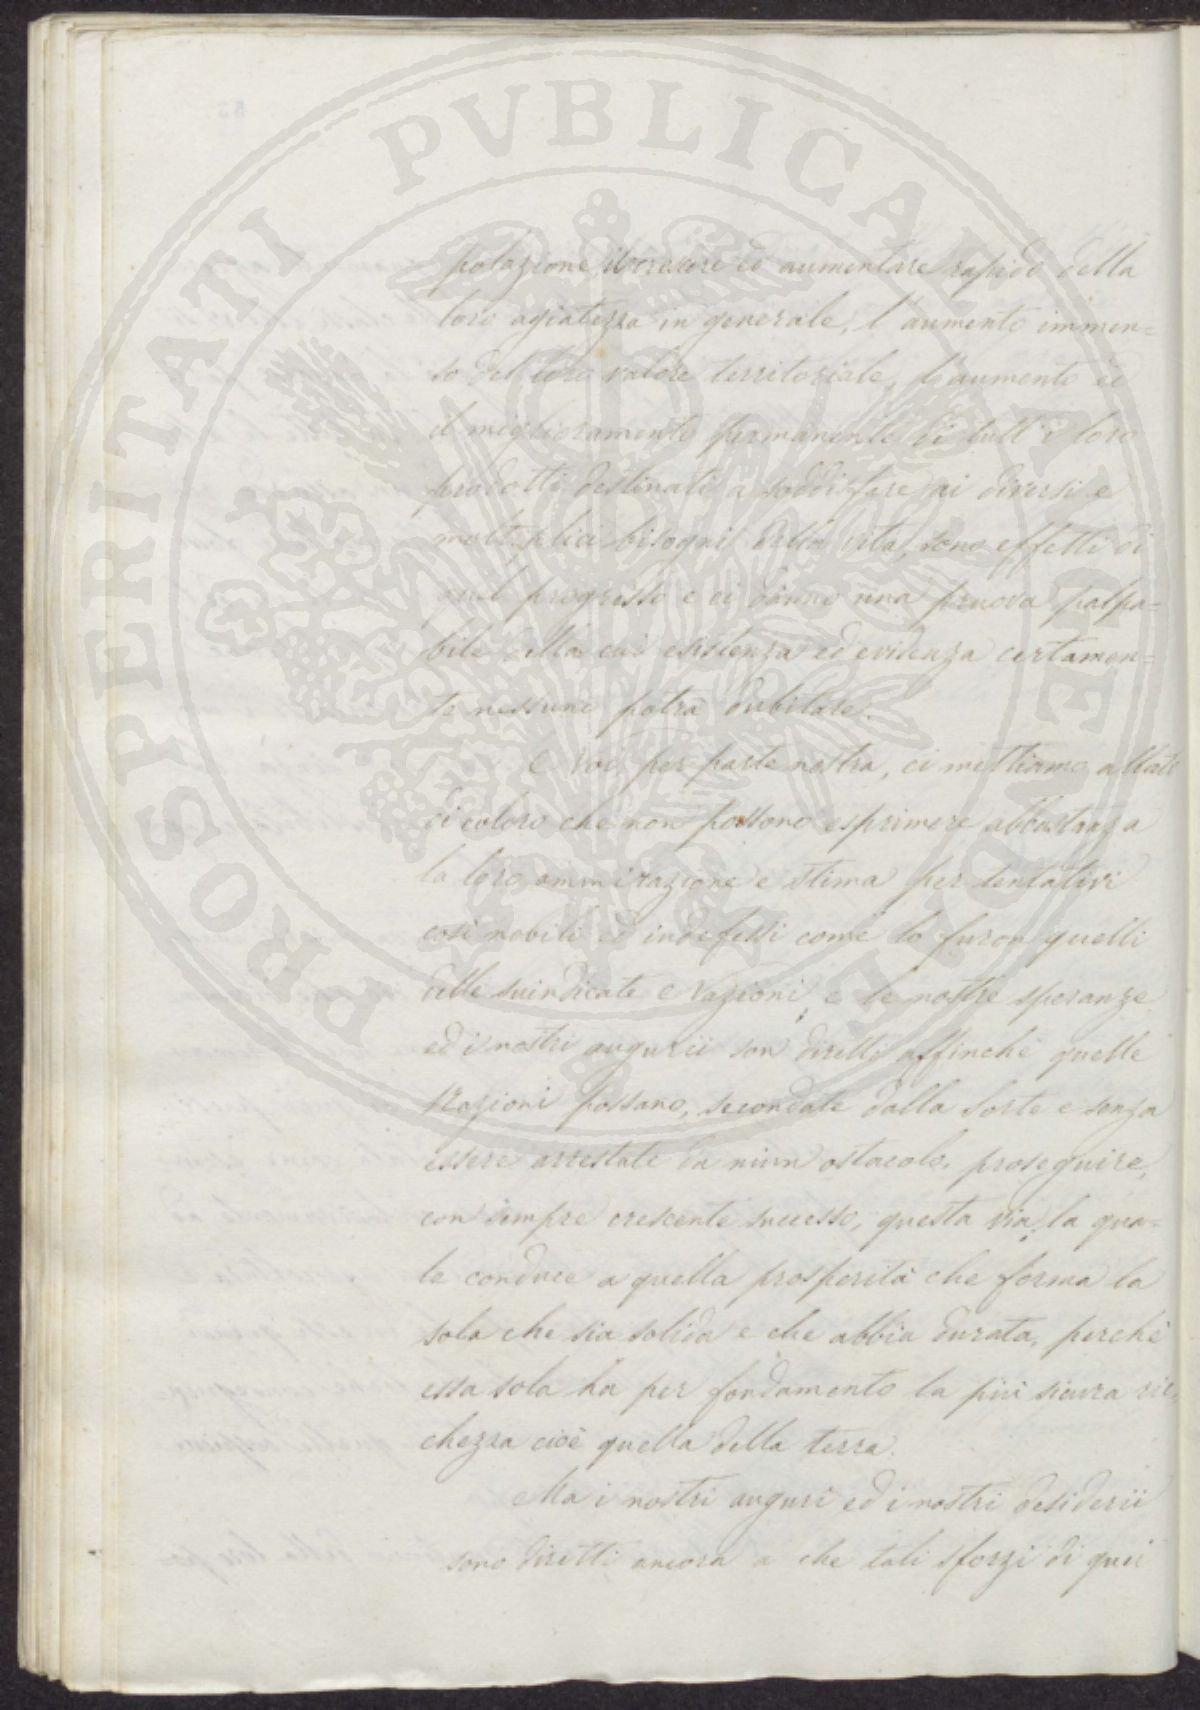 PROSPERITATI PVBLICAE AVGENDAE
polazione, il crescere ed aumentare rapido della
loro agiatezza in generale, l'aumento immen=
so del loro valore territoriale, l'aumento ed
il miglioramento permanente di tutt'i loro
prodotti destinati a soddisfare ai diversi e
molteplici bisogni della vita, sono effetti di
quel progresso e ci danno una pruova palpa=
bile della cui esistenza ed evidenza certamen=
te nessuno potrà dubitare.
E voi per parte nostra, ci mettiamo a lato
di coloro che non possono esprimere abbastanza
la loro ammirazione e stima per tentativi
così nobili ed indefessi come lo furon quelli
delle suindicate Nazioni, e le nostre speranze
ed i nostri augurii son diretti affinchè quelle
Nazioni possano, secondate dalla sorte e senza
essere arrestate da niun ostacolo, proseguire,
con sempre crescente successo, questa via, la qua=
le conduce a quella prosperità che forma la
sola che sia solida e che abbia durata, perchè
essa sola ha per fondamento la più sicura ric=
chezza cioè quella della terra.
Ma i nostri auguri ed i nostri desiderii
sono diretti ancora a che tali sforzi di quei